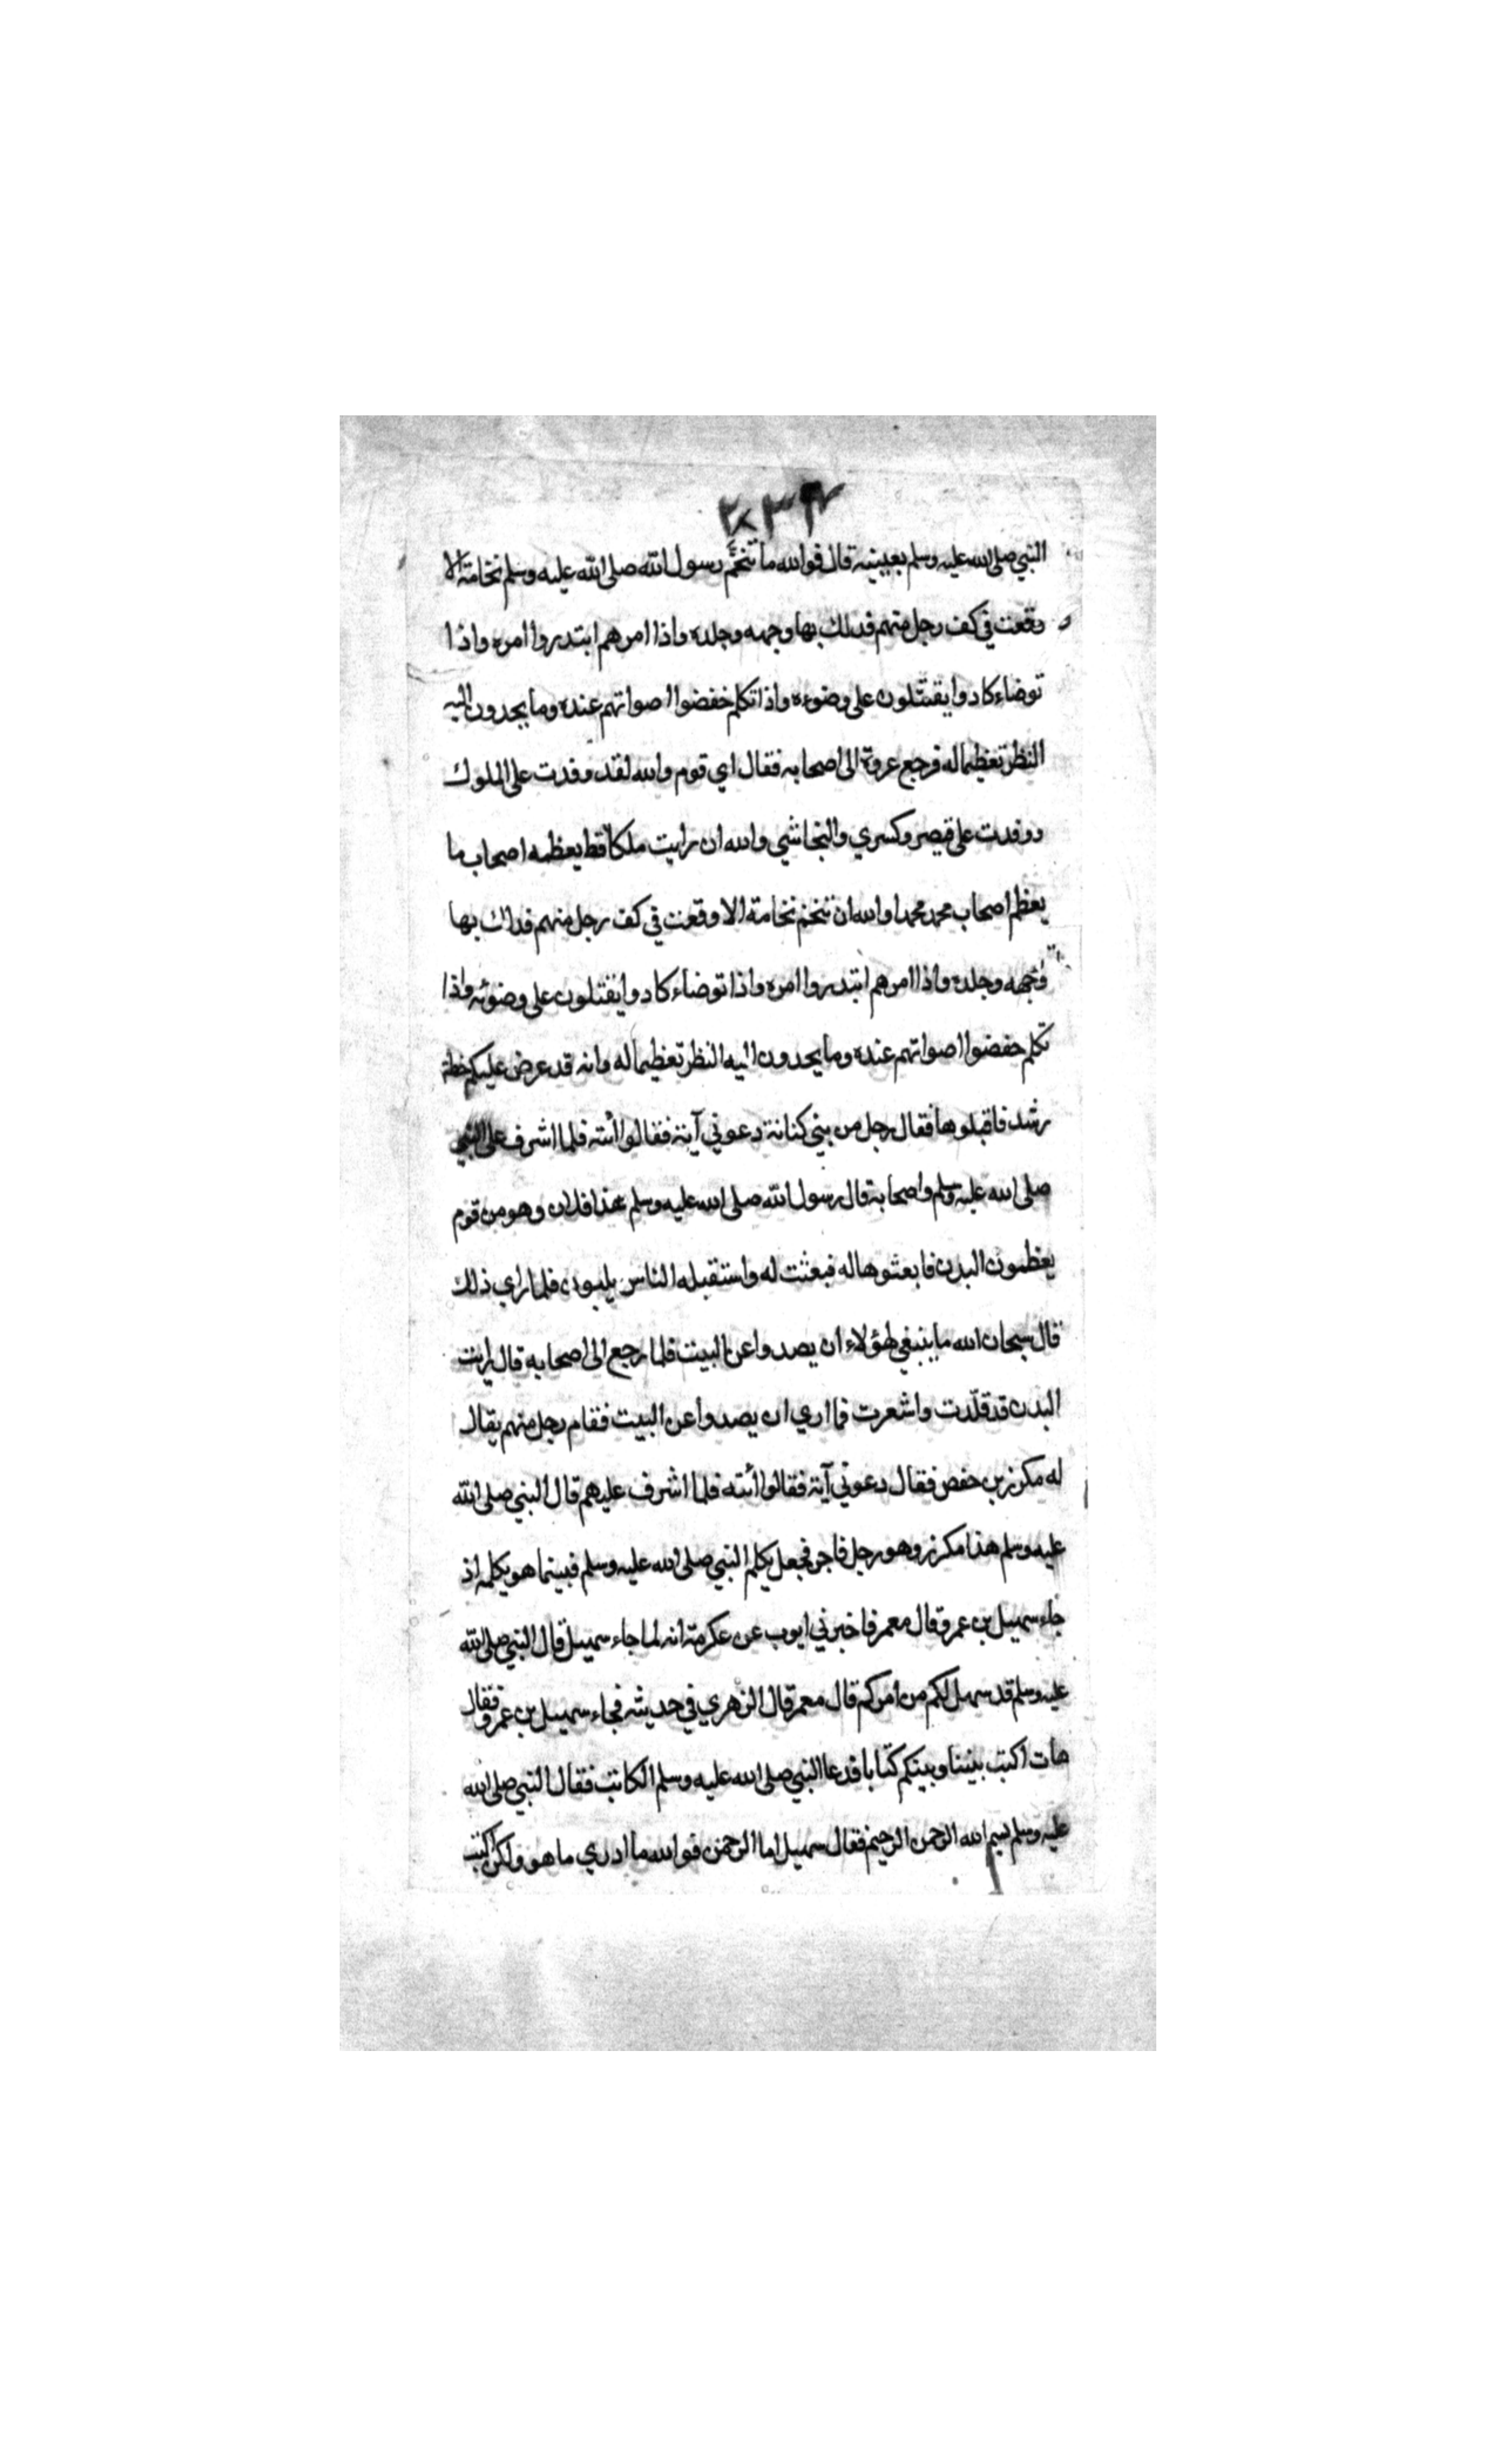 النبي صلى الله عليه وسلم بعينيه قال فوالله ما تنخم رسول الله صلى الله عليه وسلم نخامة الا
وقعت في كف رجل منهم فدلك بها وجهه وجلده واذا امرهم ابتدروا امره واذا
توضاء كادوا يقتتلون على وضوءه واذا تكلم خفضوا اصواتهم عنده وما يحدون اليه
النظر تعظيما له فرجع عروة الى اصحابه فقال اي قوم والله لقد وفدت على الملوك
ووفدت على قيصر وكسري والنجاشي والله ان رايت ملكا قط يعظمه اصحابه ما
يعظم اصحاب محمد محمدا والله ان تنخم نخامة الا وقعت في كف رجل منهم فدلك بها
وجهه وجلده واذا امرهم ابتدروا امره واذا توضاء كادوا يقتتلون على وضوئه واذا
تكلم خفضوا اصواتهم عنده وما يحدون اليه النظر تعظيما له وانه قد عرض عليكم خطة
رشد فاقبلوها فقال رجل من بني كنانة دعوني آية فقالوا ائته فلما اشرف على النبي
صلى الله عليه وسلم واصحابه قال رسول الله صلى الله عليه وسلم هذا فلان وهو من قوم
يعظمون البدن فابعثوها له فبعثت له واستقبله الناس يلبون فلما راي ذلك
قال سبحان الله ما ينبغي لهؤلاء ان يصدوا عن البيت فلما رجع الى اصحابه قال رايت
البدن قد قلّدت واشعرت فما اري ان يصدوا عن البيت فقام رجل منهم يقال
له مكرز بن حفص فقال دعوني آية فقالوا ائته فلما اشرف عليهم قال النبي صلى الله
عليه وسلم هذا مكرز وهو رجل فاجر فجعل يكلم النبي صلى الله عليه وسلم فبينما هو يكلمه اذ
جاء سهيل بن عمرو قال معمر فاخبرني ايوب عن عكرمة انه لما جاء سهيل قال النبي صلى الله
عليه وسلم قد سهل لكم من امركم قال معمر قال الزهري في حديثه فجاء سهيل بن عمرو فقال
هات اكتب بيننا وبينكم كتابا فدعا النبي صلى الله عليه وسلم الكاتب فقال النبي صلى الله
عليه وسلم بسم الله الرحمن الرحيم فقال سهيل اما الرحمن فوالله ما ادري ما هو ولكن اكتب